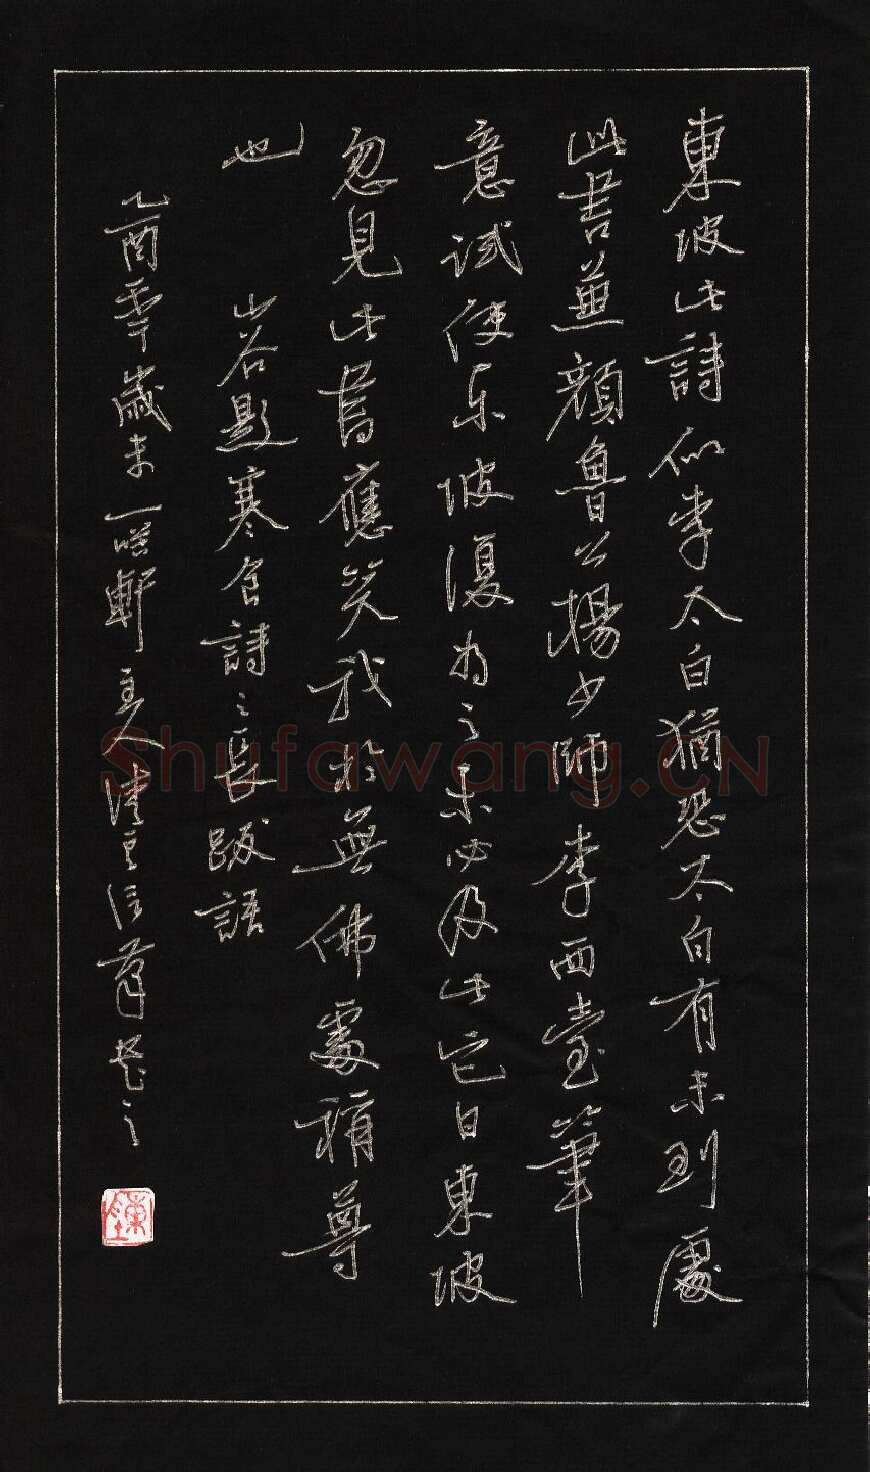 東坡此詩似李太白猶恐太白有未到處
此書兼顔魯公楊少師李西臺筆
意試使东坡復为之未必及此它日東坡
忽見此書應笑我於無佛處稱尊
也 山谷題寒食詩之長跋語
乙酉年歲末一軒主人信筆书之
Shufawang.CN